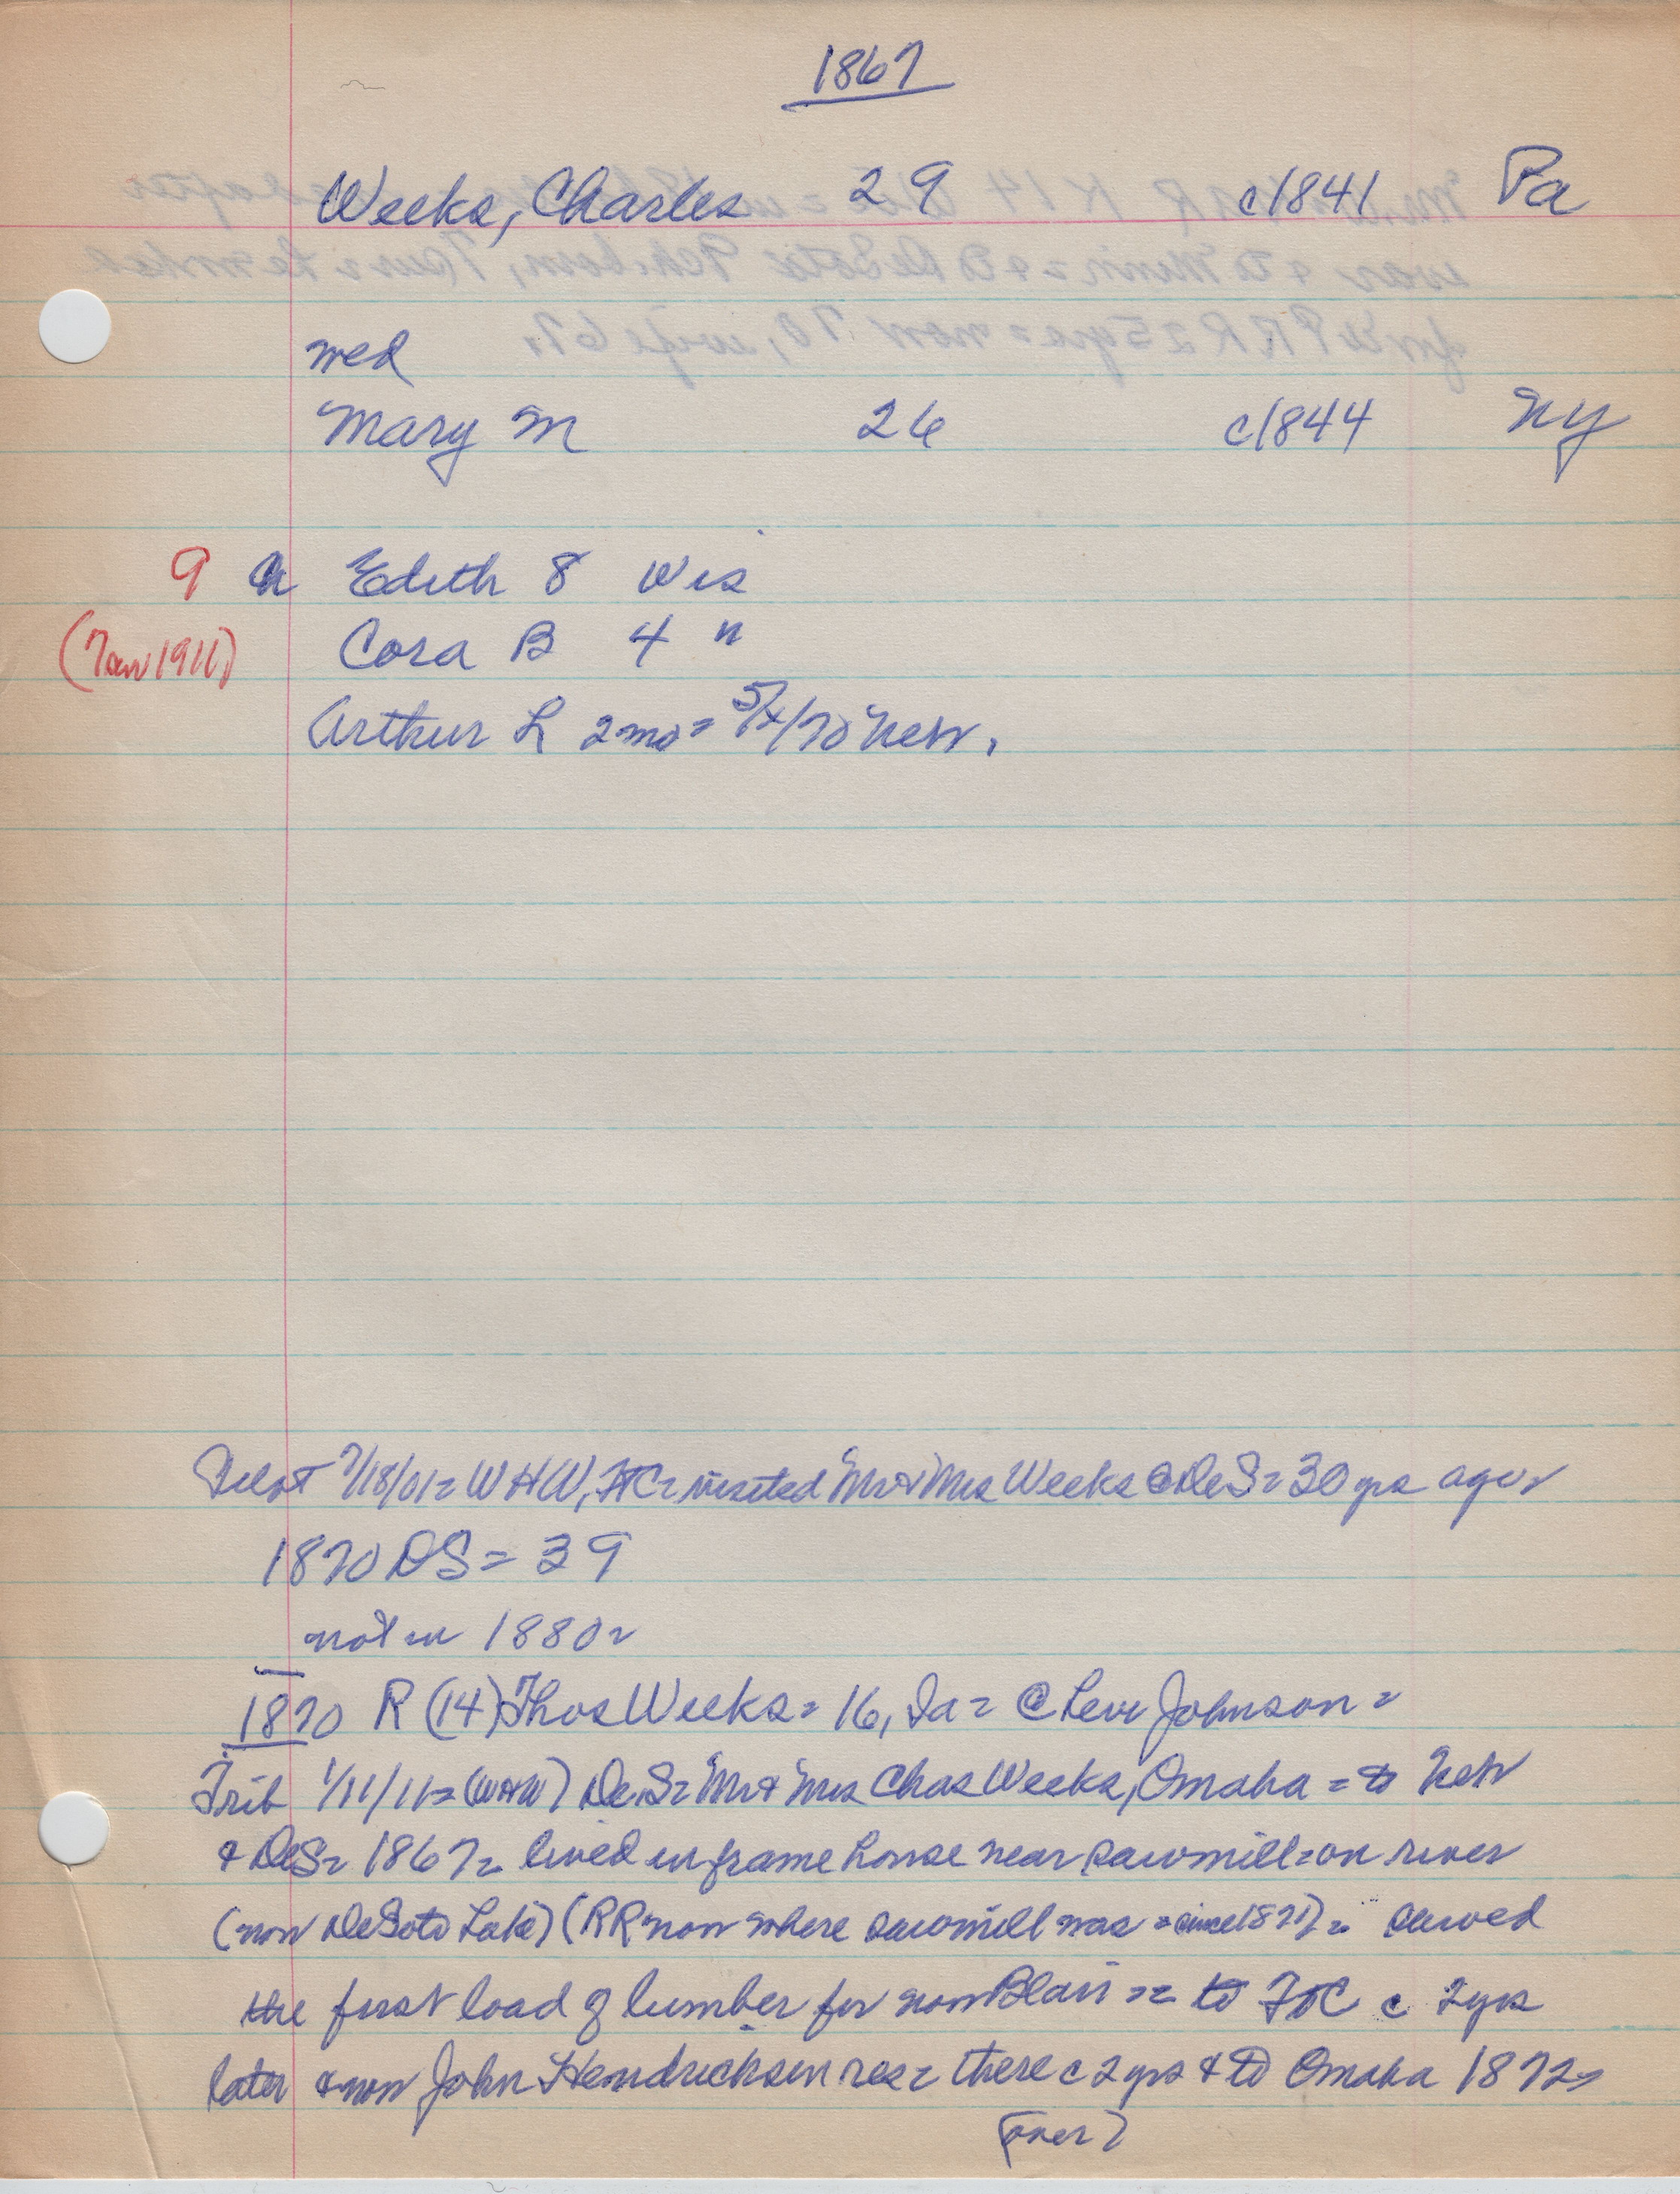 1867
Weeks, Charles 29 c1841 Pa
wed
Mary M 26 c1844 NY
9 Ch Edith 8 Wis
(Jan 1911) Cora B 4 "
Arthur L 2 mo = 5/4/70 Nebr.
Pilot 7/18/01 = WHW, FtC = visited Mr & Mrs Weeks @ DeS = 30 yrs ago =
1870 DS = 39
not in 1880 =
1870 R (14) Thos Weeks = 16, Ia = @ Levi Johnson =
Trib 1/11/11 = (WHW) DeS = Mr & Mrs Chas Weeks, Omaha = to Nebr
& DeS = 1867 = lived in frame house near sawmill = on river
(now DeSoto Lake) (RR now where sawmill was = since 1871) = sawed
the first load of lumber for now Blair = to FtC c 2 yrs
later @ now John Hendricksen res = there c 2 yrs & to Omaha 1872 =
(over)